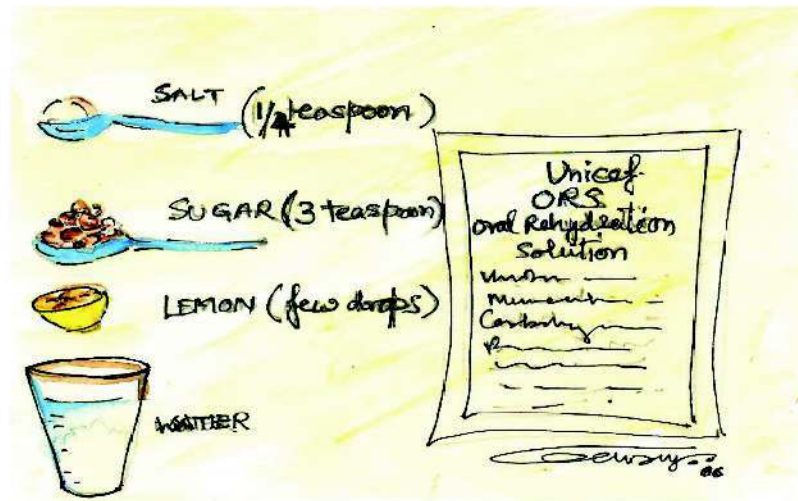 SALT (1/4 teaspoon)
SUGAR (3 teaspoon)
LEMON (few drops)
WATER
Unicef
ORS
oral Rehydration
Solution